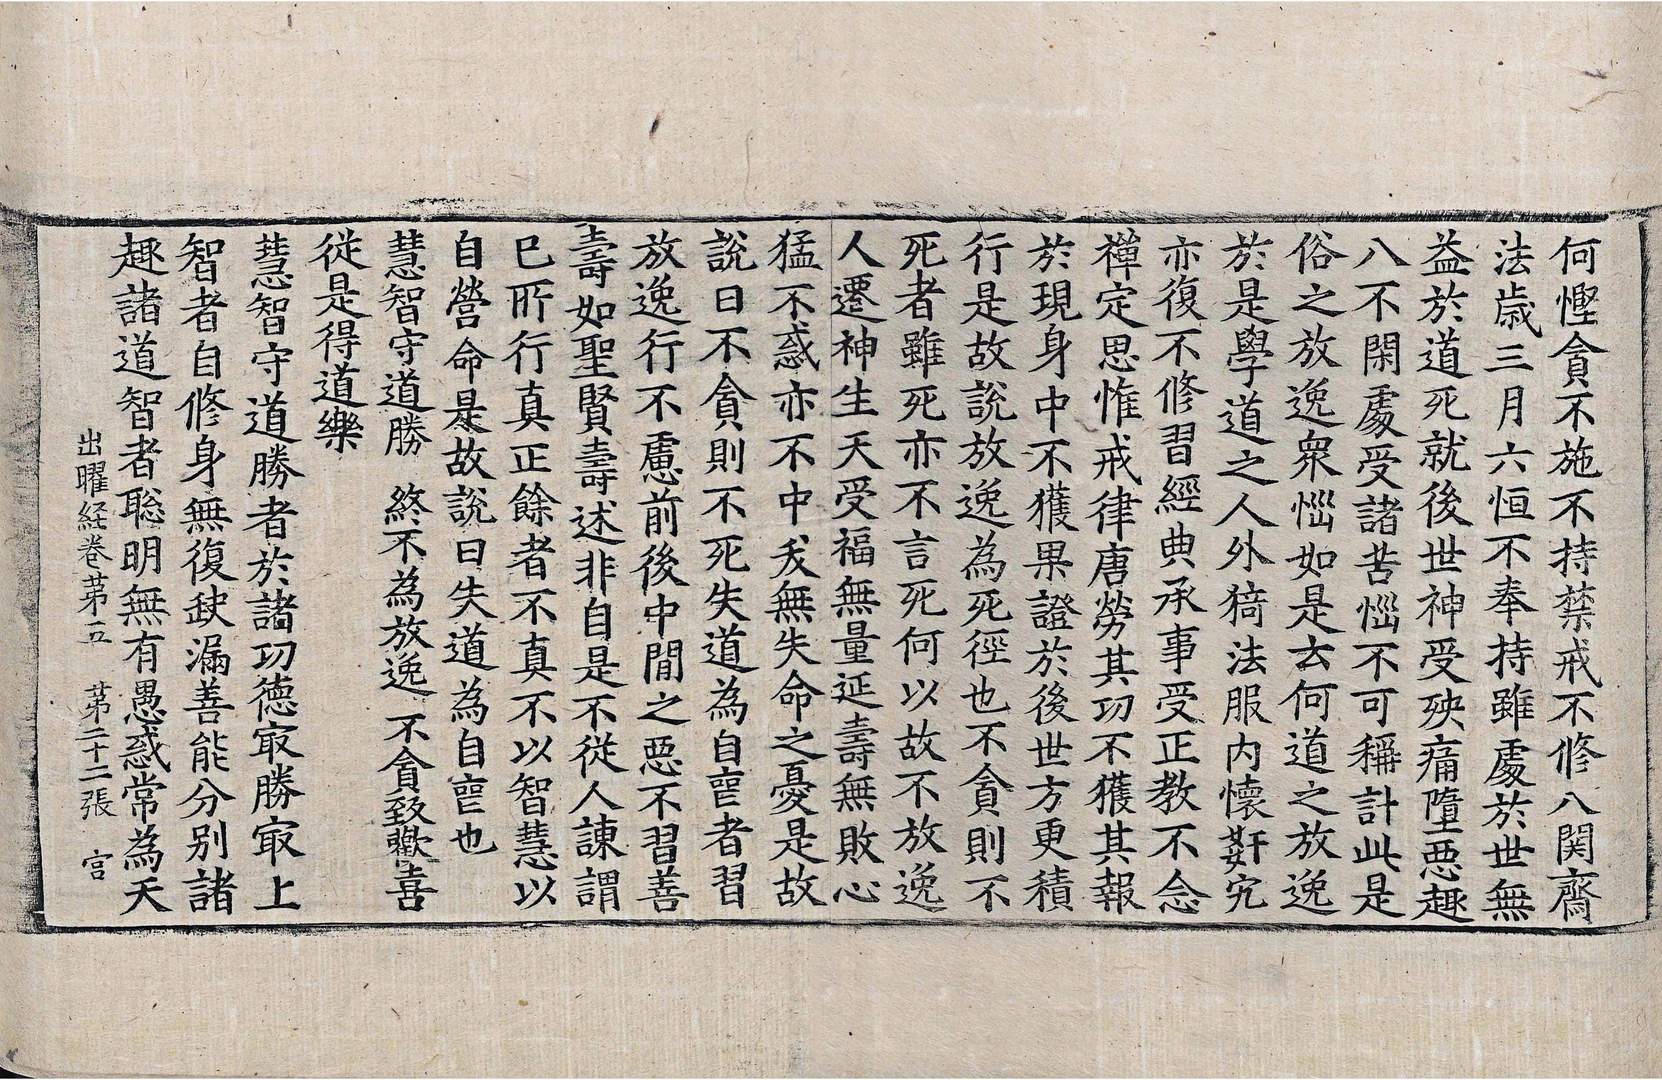 何慳貪不施不持禁戒不修八関齋
法歲三月六恒不奉持雖處於世無
益於道死就後世神受殃痛墮惡趣
八不閑處受諸苦惱不可稱計此是
俗之放逸衆惱如是云何道之放逸
於是學道之人外猗法服内懷姦宄
亦復不修習經典承事受正教不念
禪定思惟戒律唐勞其功不獲其報
於現身中不獲果證於後世方更積
行是故說放逸為死徑也不貪則不
死者雖死亦不言死何以故不放逸
人遷神生天受福無量延壽無敗心
猛不惑亦不中夭無失命之憂是故
說曰不貪則不死失道為自喪者習
放逸行不慮前後中間之惡不習善
壽如聖賢壽述非自是不從人諫謂
已所行真正餘者不真不以智慧以
自營命是故說曰失道為自喪也
慧智守道勝　終不為放逸　不貪致歡喜
從是得道樂
慧智守道勝者於諸功德冣勝冣上
智者自修身無復缺漏善能分別諸
趣諸道智者聡明無有愚惑常為天
出曜経卷苐五　苐二十二張　宫